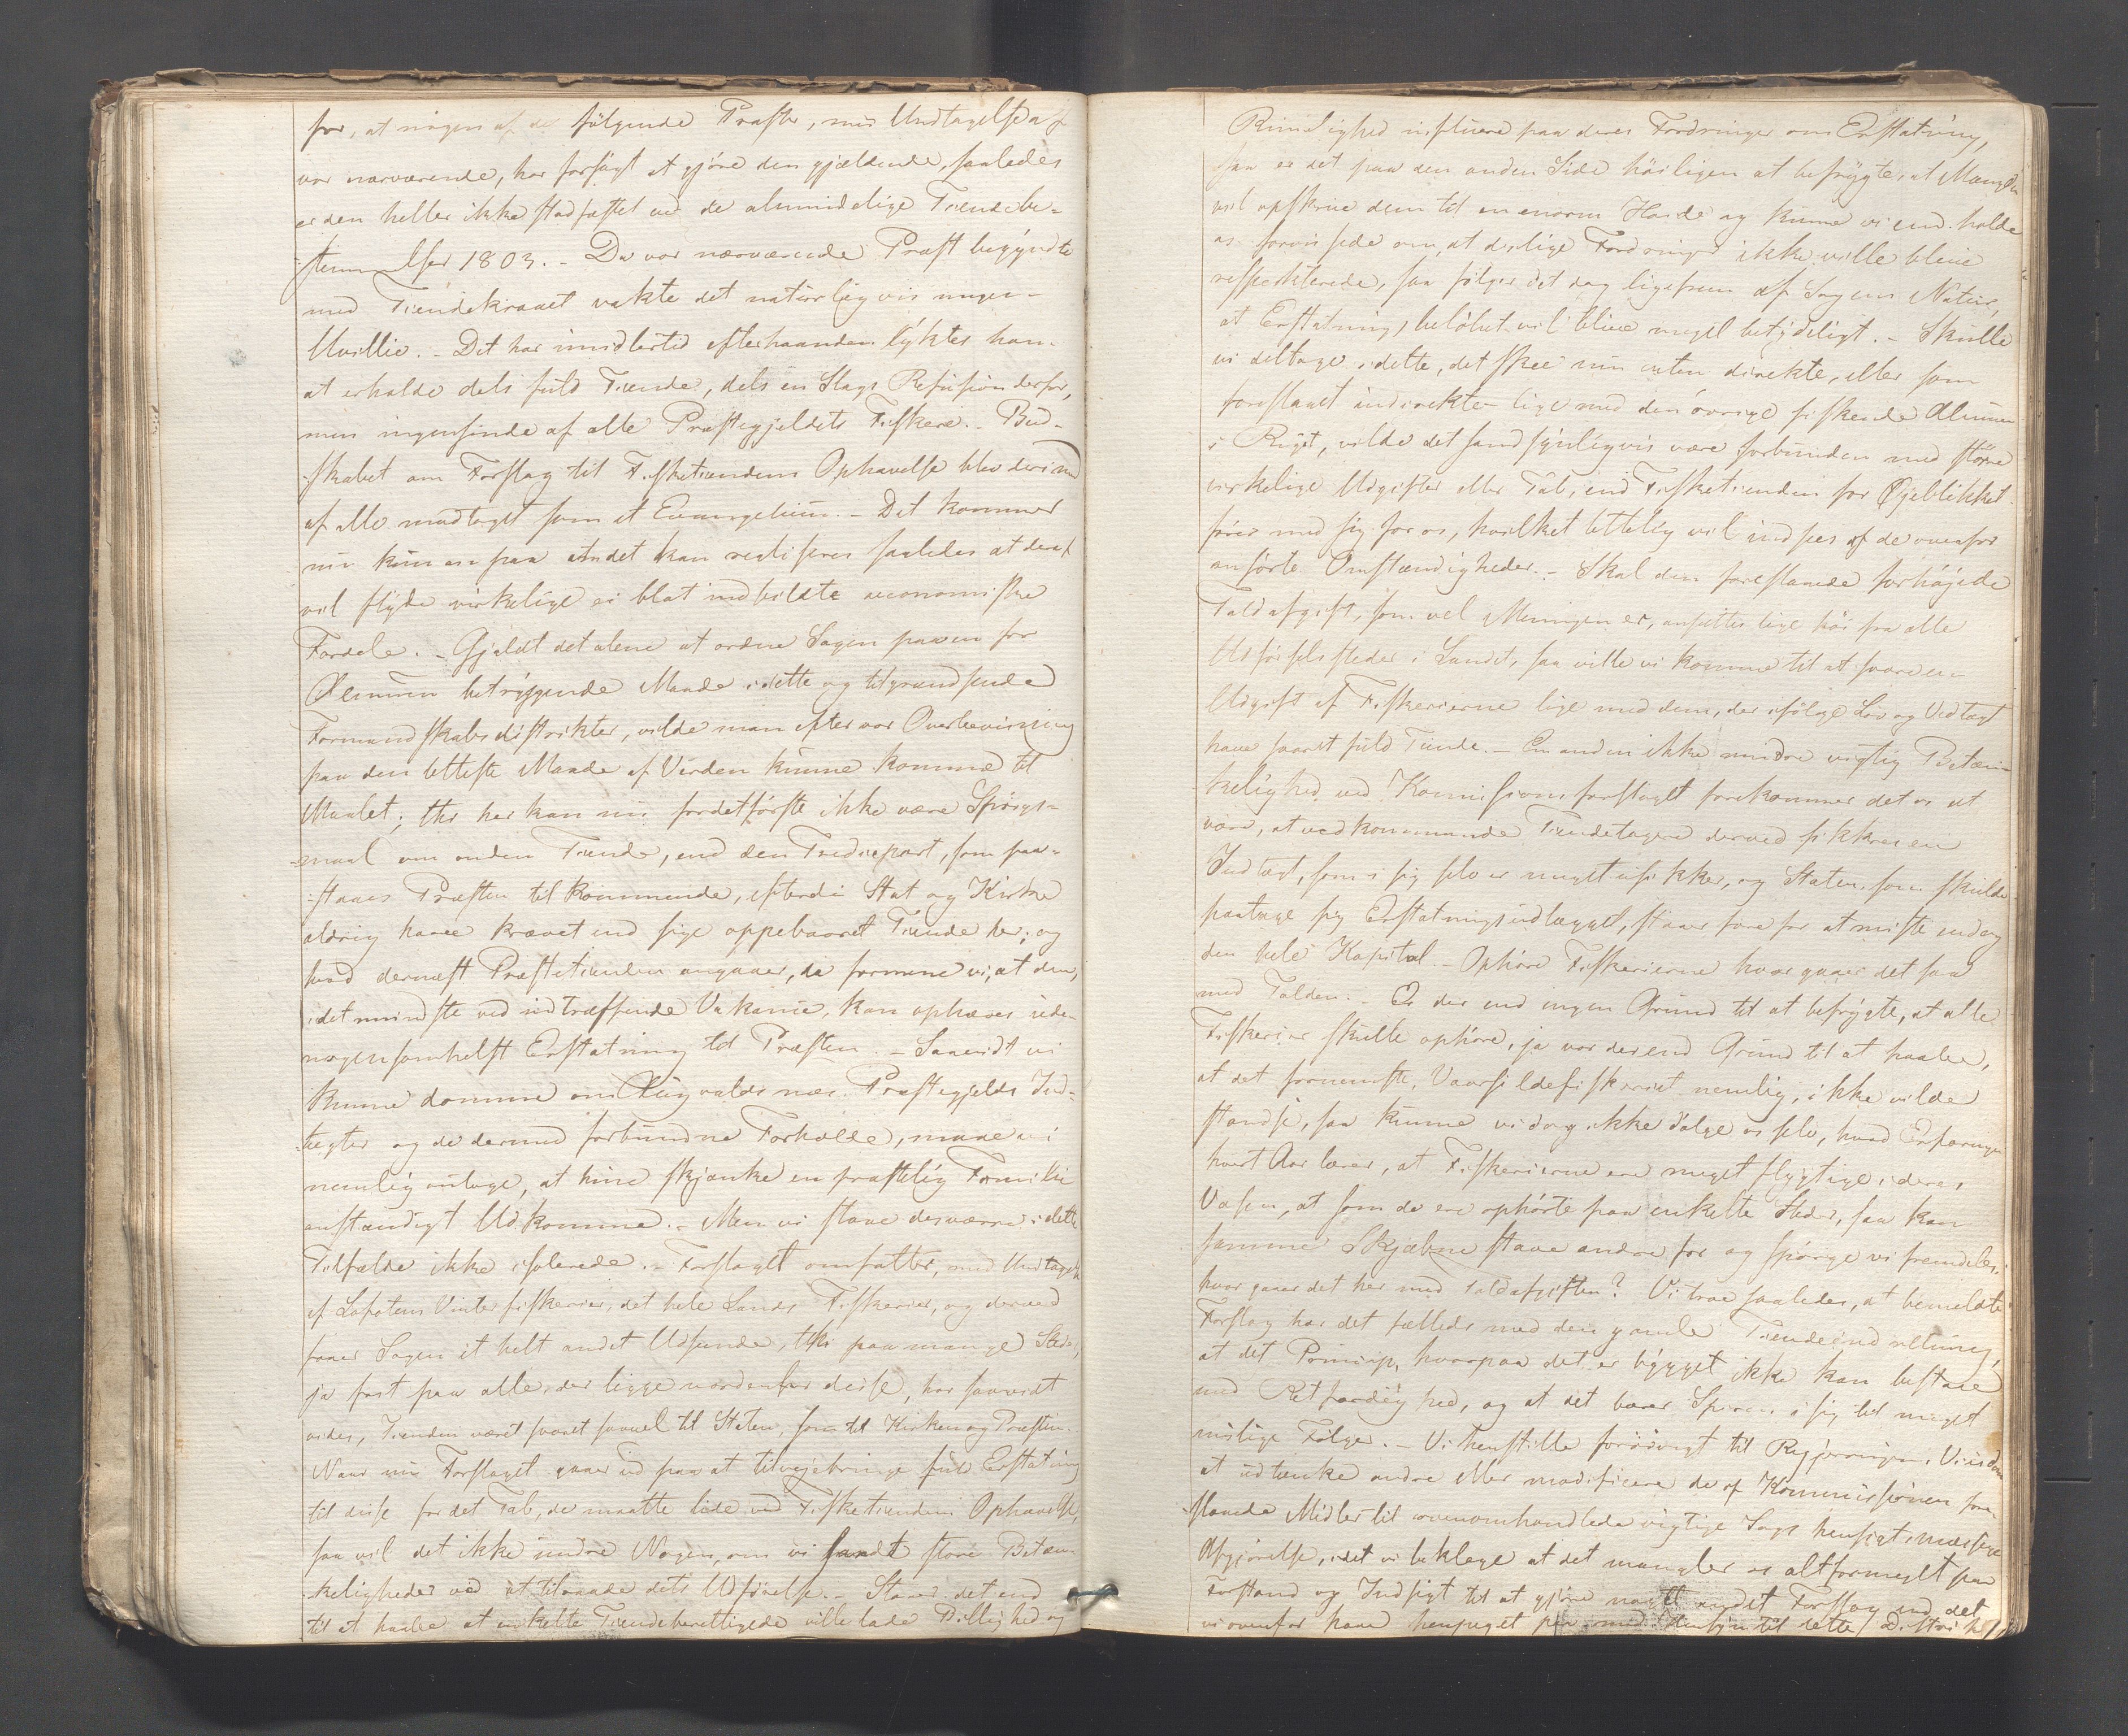 for, at nogen af de følgende Præster, med Undtagelse af
vor nærværende, har forsøgt at gjöre den gjældende, saaledes
er den heller ikke stadfæstet ved de almindelige Tiendebe-
stemmelser 1803. - Da vor nærværende Præst begyndte
med Tiendekravet vakte det naturligvis megen
Uvillie. - Det har imidlertid efterhaanden lyktes ham
at erholde dels fuld Tiende, dels en Slags Refusion derfor,
men ingensinde af alle Præstegjeldets Fiskere. - Bud-
skabet om Forslag til Fisketiendens Ophævelse blev derimod
af alle modtaget som et Evangelium. - Det kommer
nu kun an paa at det kan realiseres saaledes at deraf
vil flyde virkelige ei blot indbildte oeconomiske
Fordele. - Gjaldt det alene at ordne Sagen paa en for
Almuen betryggende Maade i dette og tilgrændsende
Formandskabsdistrikter, vilde man efter vor Overbeviisning
paa den letteste Maade af Verden kunne komme til
Maalet; thi her kan nu fordetförste ikke være Spörgs-
maal om anden Tiende, end den Tredjepart, som paa-
staaes Præsten tilkommende, efterdi Stat og Kirke
aldrig have krævet end sige oppebaaret Tiende her; og
hvad dernæst Præstetienden angaaer, da formene vi, at den,
idetmindste ved indtræffende Vakance, kan ophæves uden
nogensomhelst Erstatning til Præsten. - Saavidt vi
kunne dømme om Augvaldsnæs Præstegjelds Ind-
tægter og de dermed forbundne Forholde, maae vi
nemlig antage, at hine skjænke en præstelig Familie
anstændigt Udkomme. - Men vi staae desværre i dette
Tilfælde ikke isolerede. - Forslaget omfatter, med Undtagelse
af Lofotens Vinterfiskerier, det hele Lands Fiskerier, og derved
faaer Sagen et helt andet Udseende, thi paa mange Steder,
ja fast paa alle, der ligge nordenfor disse, har saavidt
vides, Tienden været svaret saavel til Staten, som til Kirken og Præsten.
Naar nu Forslaget gaaer ud paa at tilveiebringe fuld Erstatning
til disse for det Tab, de maatte lide ved Fisketiendens Ophævelse,
saa vil det ikke undre Nogen, om vi fandt store Betæn-
keligheder ved at tilraade dets Udförelse. - Staaer det end
til at haabe at enkelte Tiendeberettigede ville lade Billighed og
Rimelighed influere paa deres Fordringer om Erstatning,
saa er det paa den anden Side höiligen at befrygte, at Mængden
vil opskrue dem til en enorm Höide og kunne vi end holde
os forvissede om, at deslige Fordringer ikke ville blive
respekterede, saa fölger det dog ligefrem af Sagens Natur,
at Erstatningsbelöbet vil blive meget betydeligt. - Skulle
vi deltage i dette, det skee nu enten direkte, eller som
foreslaaet indirekte lige med den övrige fiskende Almue
i Riget, vilde det sandsynligvis være forbunden med större
virkelige Udgifter eller Tab, end Fisketienden for Øjeblikket
förer med sig for os, hvilket lettelig vil indsees af de ovenfor
anförte Omstændigheder. - Skal den foreslaaede forhöjede
Toldafgift, som vel Meningen er, ansættes lige höi fra alle
Udförselssteder i Landet, saa ville vi komme til at svare en
Udgift af Fiskerierne lige med dem, der ifölge Lov og Vedtægt
have svaret fuld Tiende. - En anden ikke mindre vigtig Betæn-
kelighed ved Kommissionsforslaget forekommer det os at
være, at vedkommende Tiendetagere derved sikkres en
Indtægt, som i sig selv er meget usikker, og Staten, som skulde
paatage sig Erstatningsudlægget, staaer fare for at miste endog
den hele Kapital. - Ophöre Fiskerierne hvor gaaer det saa
med Tolden. - Er der end ingen Grund til at befrygte, at alle
Fiskerier skulle ophöre, ja var der end Grund til at haabe,
at det fornemste, Vaarsildefiskeriet nemlig, ikke vilde
standse, saa kunne vi dog ikke dölge os selv, hvad Erfaringen
hvert Aar lærer, at Fiskerierne ere meget flygtige i deres
Væsen, at som de ere ophörte paa enkelte Steder, saa kan
samme Skjæbne staae andre for og spörge vi fremdeles:
hvor gaaer det her med Toldafgiften? Vi troe saaledes, at bemeldte
Forslag har det fælleds med den gamle Tiendeindretning,
at det Princip, hvorpaa det er bygget ikke kan bestaae
med Retfærdighed, og at det bærer Spiren i sig til meget
uislige Fölger. - Vi henstille forövrigt til Regjeringens Viisdom
at udtænke andre eller modificere de af Kommissionen fore-
slaaede Midler til ovenomhandlede vigtige Sags hensigtsmæssige
Afgjörelse, idet vi beklage at det mangler os altformeget paa
Forstand og Indsigt til at gjöre noget andet Forslag end det
vi ovenfor have henpeget paa med Hensyn til dette Distrikt